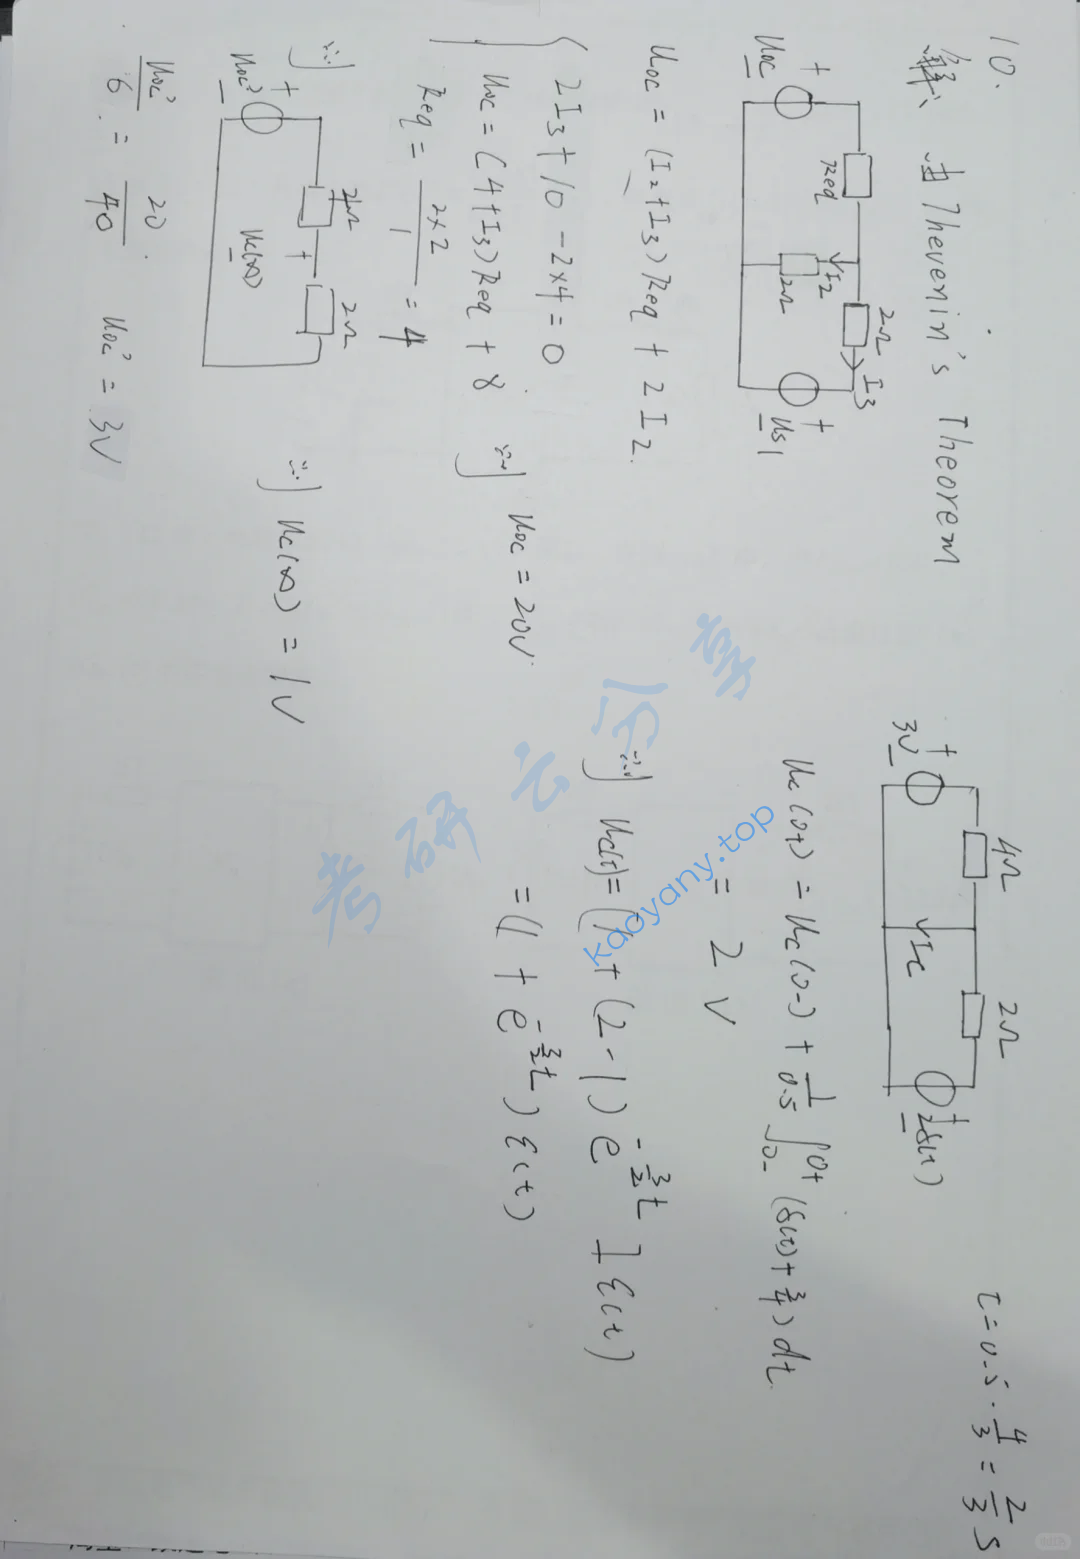 10.
解: 由 Thevenin's Theorem
+
Uoc
-
Req
I2
2Ω
2Ω
I3
+
Us1
-
Uoc = (I2+I3)Req + 2I2.
2I3+10-2×4=0
Uoc=(4+I3)Req+8
Req = 2×2/1 = 4
则 Uoc=20V.
则
+
Uoc'
-
4Ω
+
Uc(∞)
-
2Ω
则 Uc(∞) = 1V
Uoc'/6 = 20/40 Uoc' = 3V
+
3V
-
4Ω
Ic
2Ω
+
2δ(t)
-
τ=0.5·4/3=2/3 s
Uc(0+) = Uc(0-) + 1/0.5 ∫0-^0+ (δ(t)+3/4)dt
= 2V
则 Uc(t)=[1+(2-1)e^{-3/2 t}]ε(t)
=(1+e^{-3/2 t})ε(t)
考研云分享
kaoyany.top